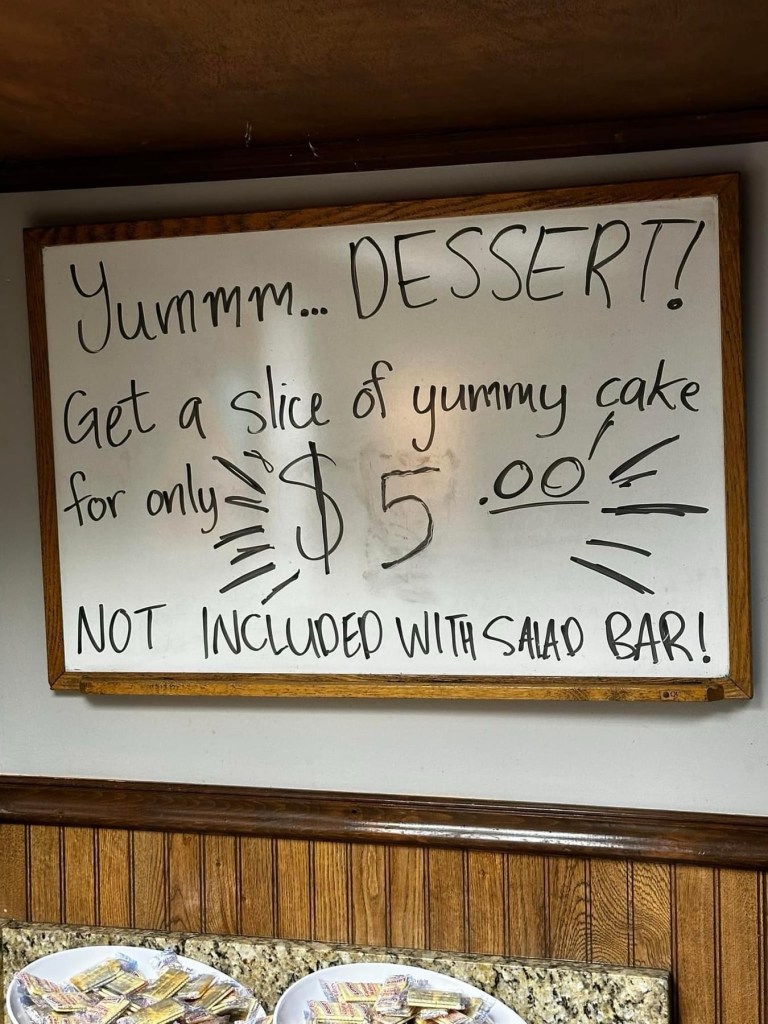 Yummm... DESSERT!
Get a slice of yummy cake
for only $5.00
NOT INCLUDED WITH SALAD BAR!